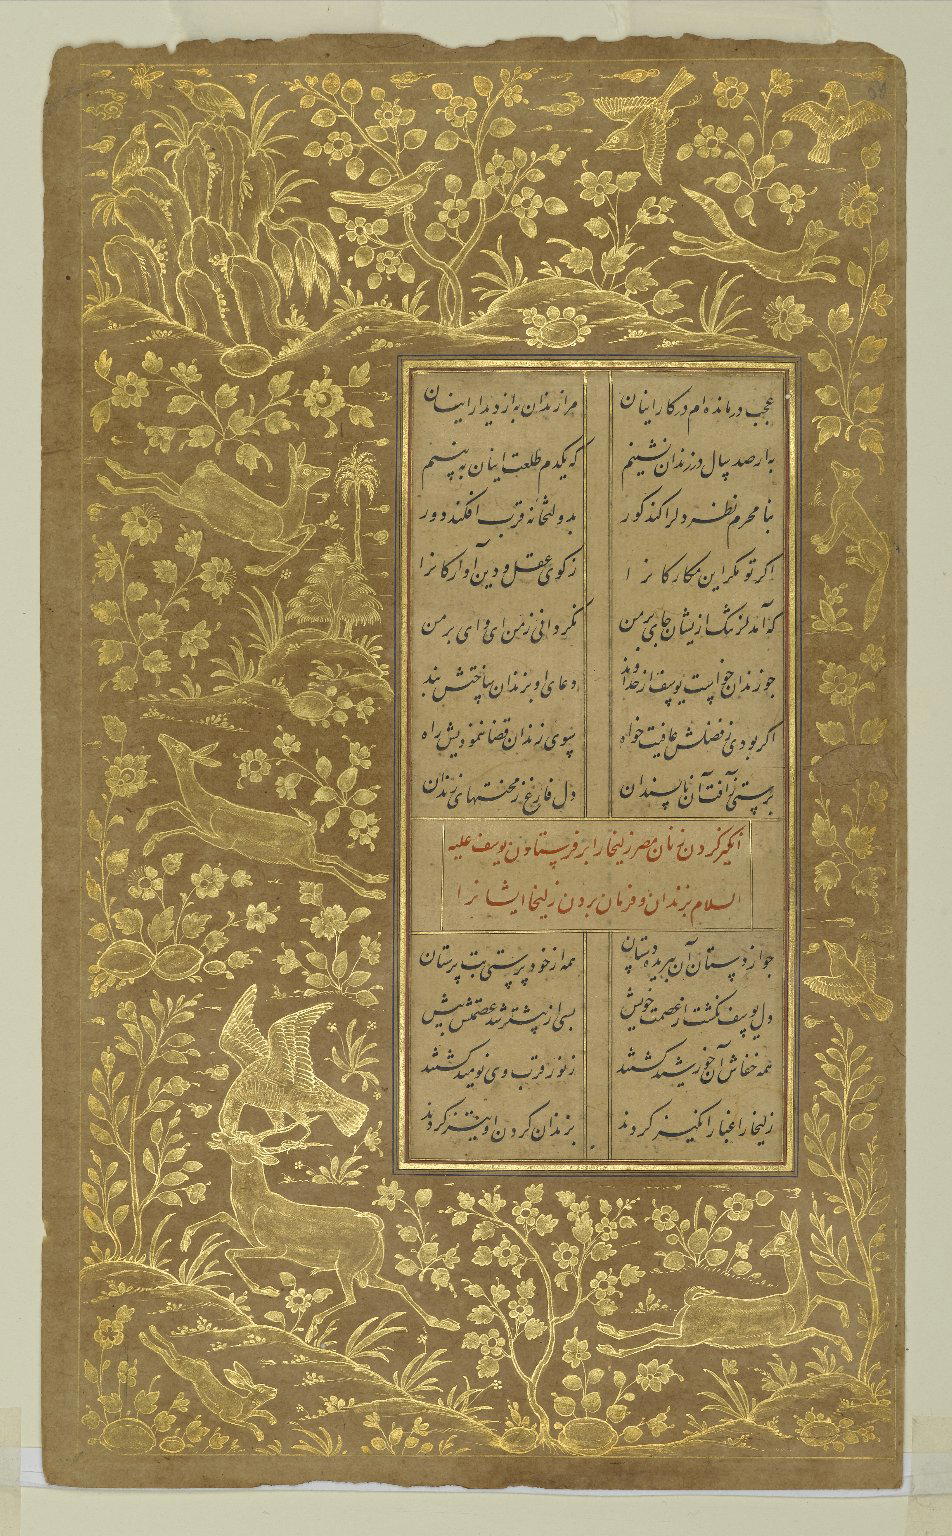 عجب درمانده‌ام در کار اینان مرا زندان به از دیدار اینان
به ار صد سال در زندان نشینم که یکدم طلعت اینان به بینم
بنا محرم نظر دلرا کند کور ز دولتخانه قرب افکند دور
اگر تو مکر این مکارکانرا ز کوی عقل و دین آوارکانرا
که آمد لز تنک ازیشان جای بر من نکردانی ز من ای وای بر من
چو زندان خواست یوسف از خداوند دعای او بزندان ساختش بند
اکر بودی ز فضلش عافیت خواه سوی زندان قضا ننمودیش راه
برستی ز آفت آن ناپسندان دل فارغ ز محنتهای زندان
انکیز کردن زنان مصر زلیخا را بر فرستادن یوسف علیه
السلام بزندان و فرمان بردن زلیخا ایشانرا
چو از دستان آن ببریده دستان همه از خود پرستی بت پرستان
دل یوسف نکشت از عصمت خویش بسی از پیشتر شد عصمتش بیش
همه خفاش آن خورشید کشتند ز نور قرب وی نومید کشتند
زلیخا را غبار انکیز کردند بزندان کردن او تیز کردند